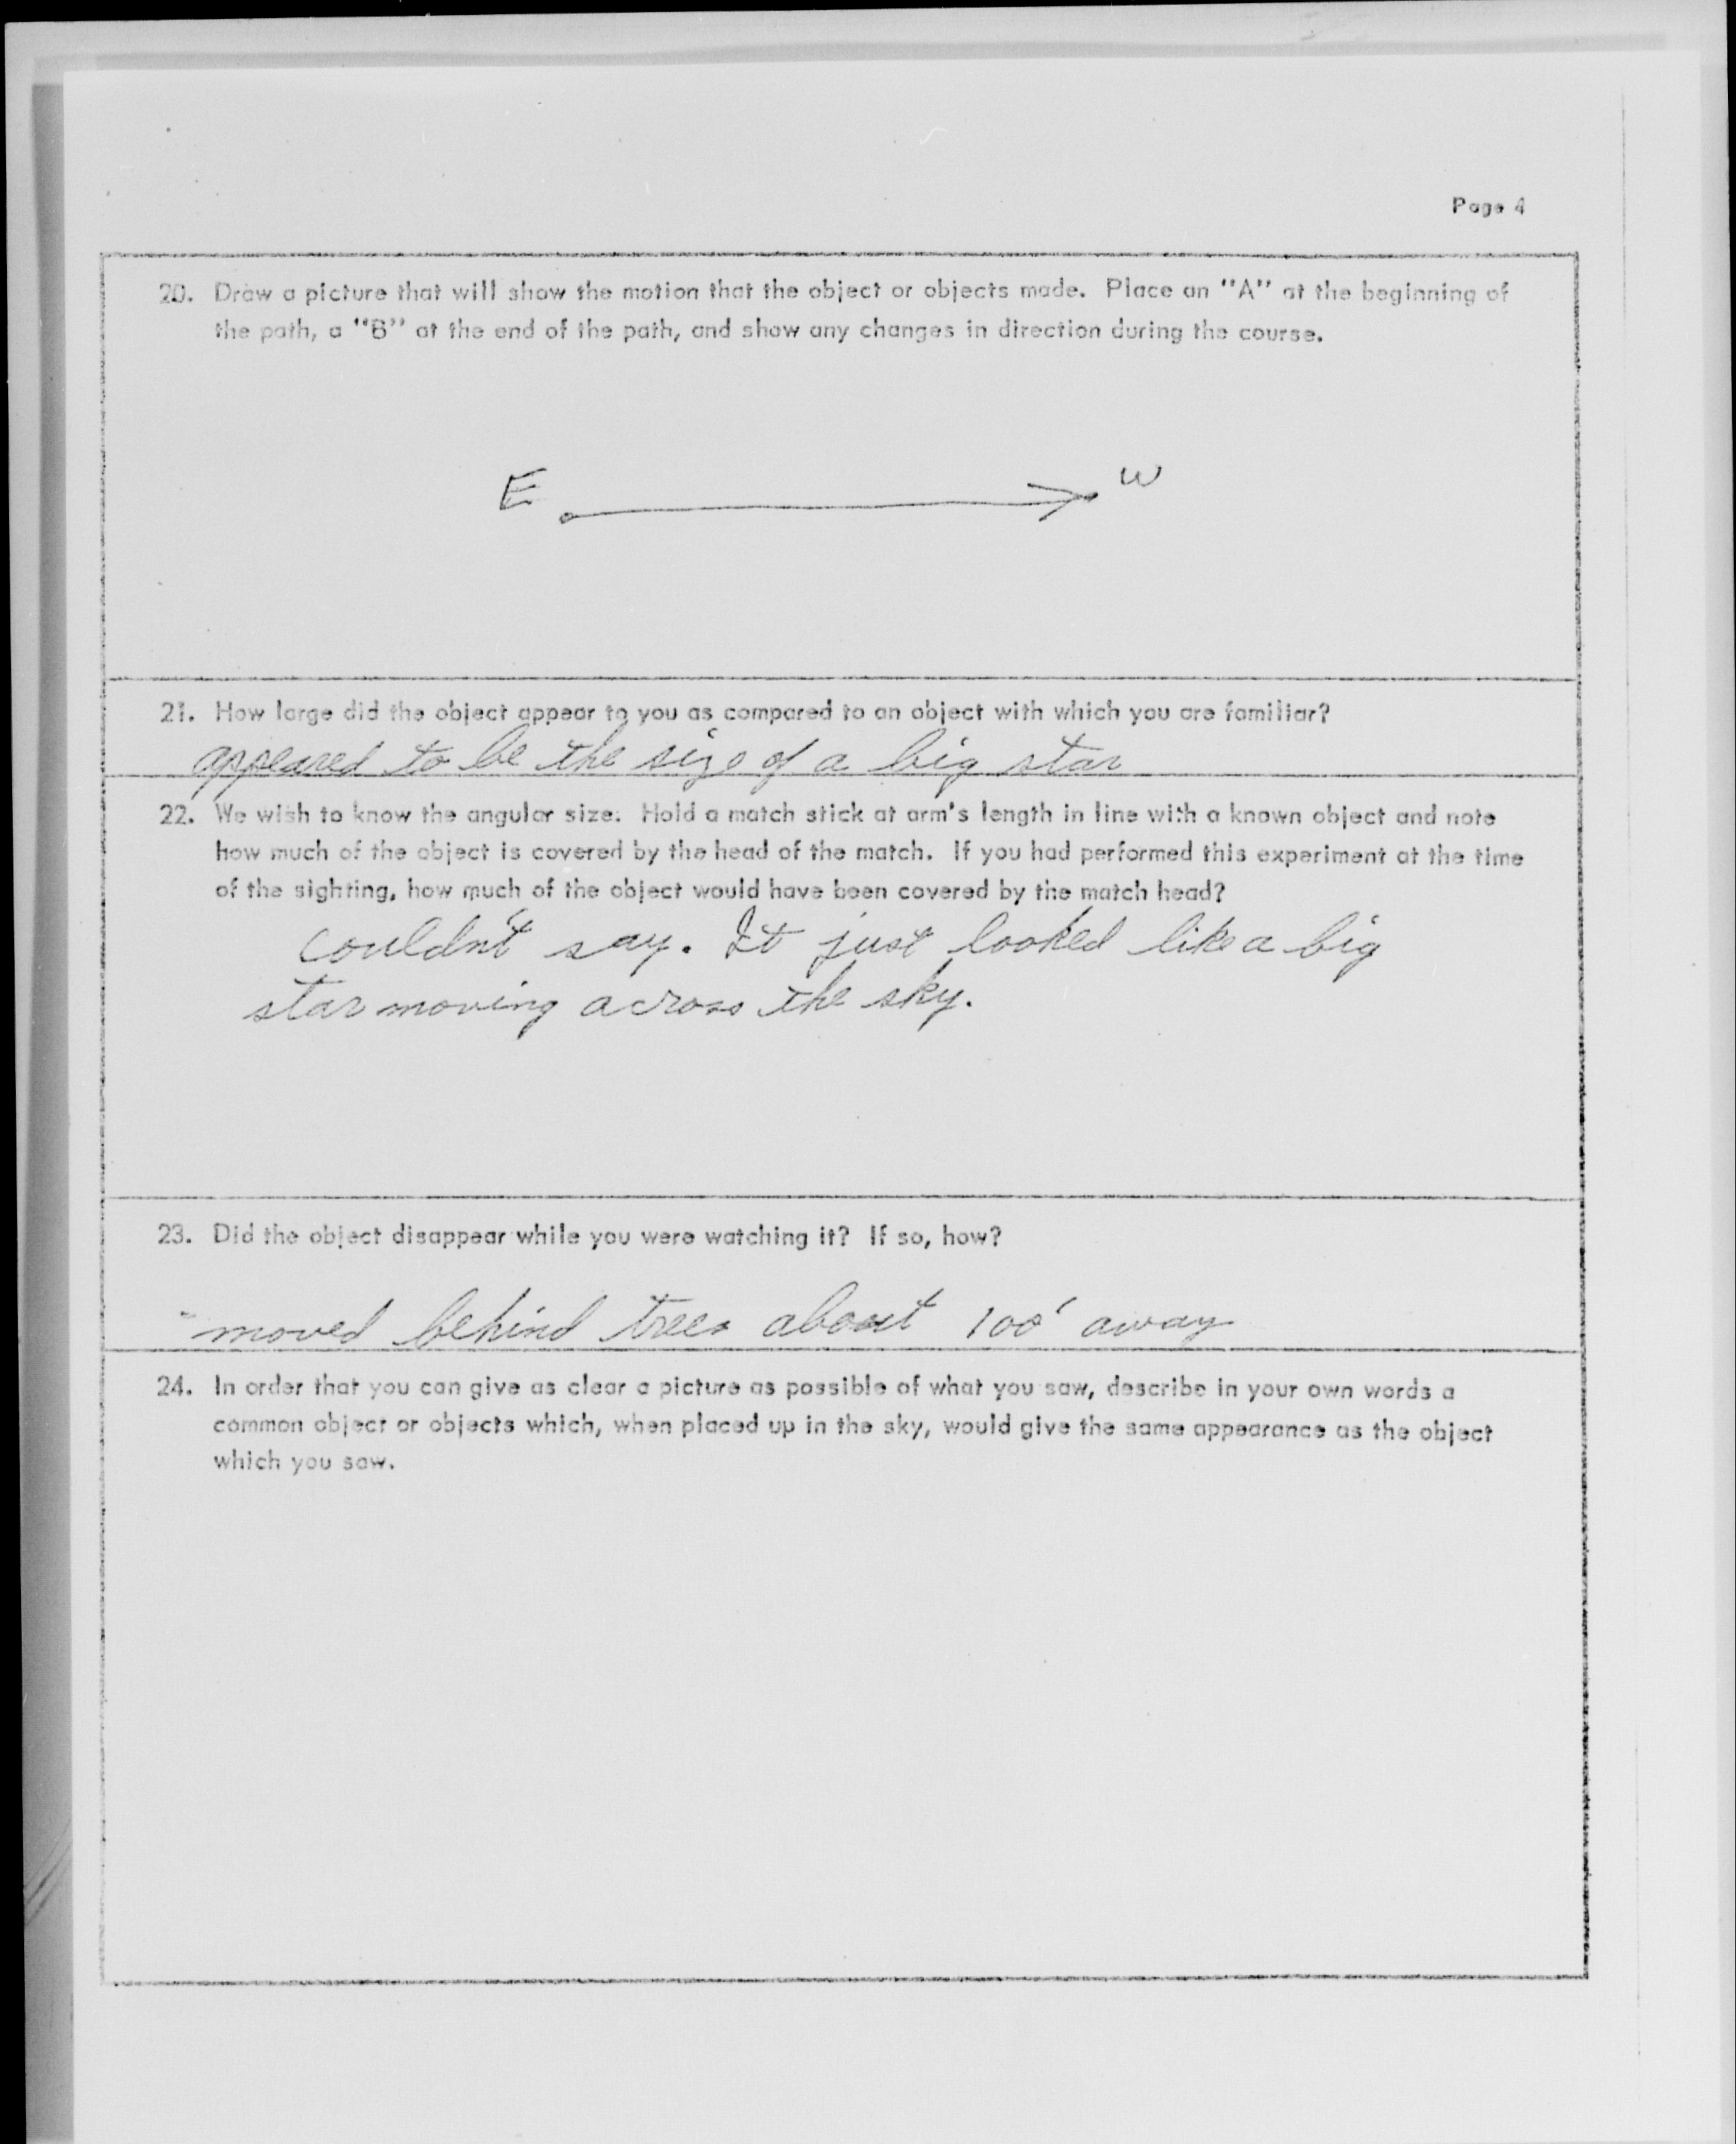 Page 4
20. Draw a picture that will show the motion that the object or objects made. Place an "A" at the beginning of
the path, a "B" at the end of the path, and show any changes in direction during the course.
E W
21. How large did the object appear to you as compared to an object with which you are familiar?
appeared to be the size of a big star
22. We wish to know the angular size. Hold a match stick at arm's length in line with a known object and note
how much of the object is covered by the head of the match. If you had performed this experiment at the time
of the sighting, how much of the object would have been covered by the match head?
couldn't say. It just looked like a big
star moving across the sky.
23. Did the object disappear while you were watching it? If so, how?
moved behind trees about 100' away
24. In order that you can give as clear a picture as possible of what you saw, describe in your own words a
common object or objects which, when placed up in the sky, would give the same appearance as the object
which you saw.